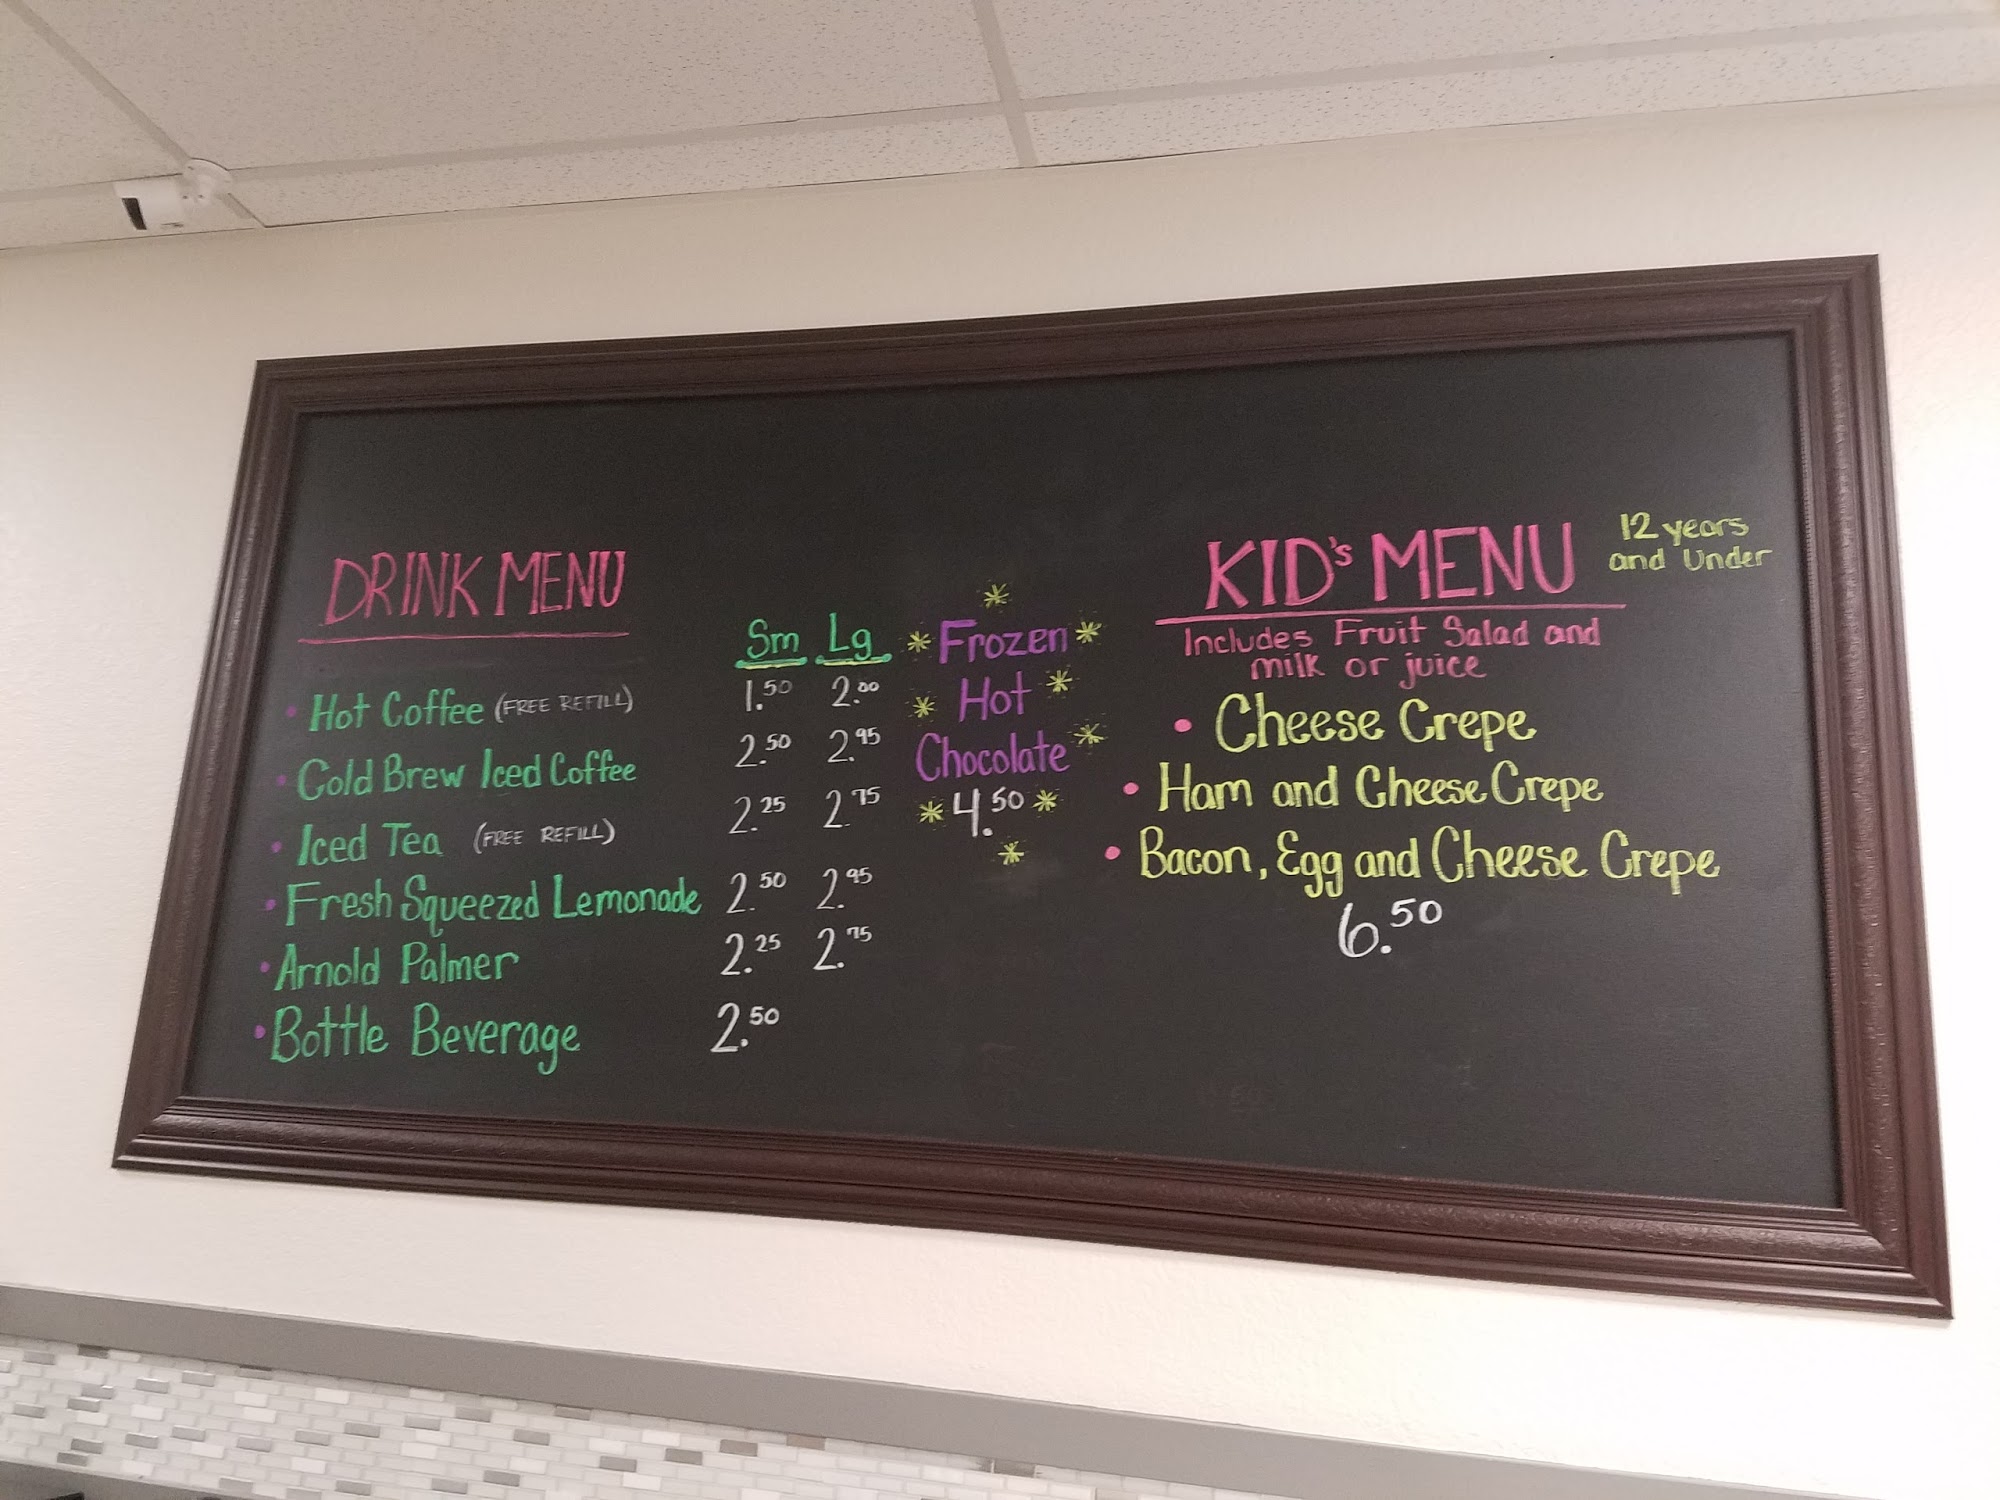 DRINK MENU
Sm Lg
• Hot Coffee (FREE REFILL) 1.50 2.00
• Cold Brew Iced Coffee 2.50 2.95
• Iced Tea (FREE REFILL) 2.25 2.75
• Fresh Squeezed Lemonade 2.50 2.95
• Arnold Palmer 2.25 2.75
• Bottle Beverage 2.50
Frozen
Hot
Chocolate
4.50
KID's MENU
12 years
and Under
Includes Fruit Salad and
milk or juice
• Cheese Crepe
• Ham and Cheese Crepe
• Bacon, Egg and Cheese Crepe
6.50